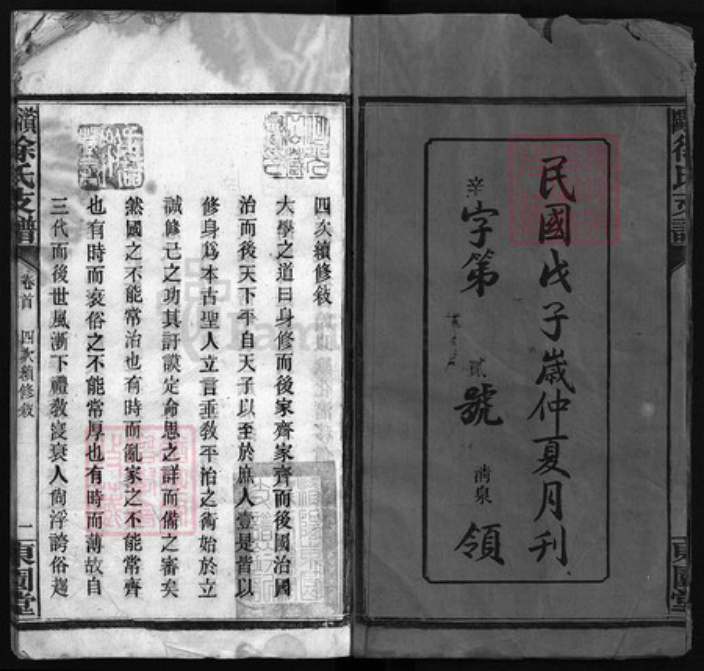 民國戊子歲仲夏月刊
辛字第貳號
清泉領
四次續修敘
大學之道曰身修而後家齊家齊而後國治國
治而後天下平自天子以至於庶人壹是皆以
修身爲本古聖人立言垂敎平治之術始於立
誠修己之功其訏謨定命思之詳而備之審矣
然國之不能常治也有時而亂家之不能常齊
也有時而衰俗之不能常厚也有時而薄故自
三代而後世風漸下禮敎寖衰人尙浮誇俗趨
徐氏支譜
卷首
四次續修敘
一
東園堂
徐氏支譜
東園堂